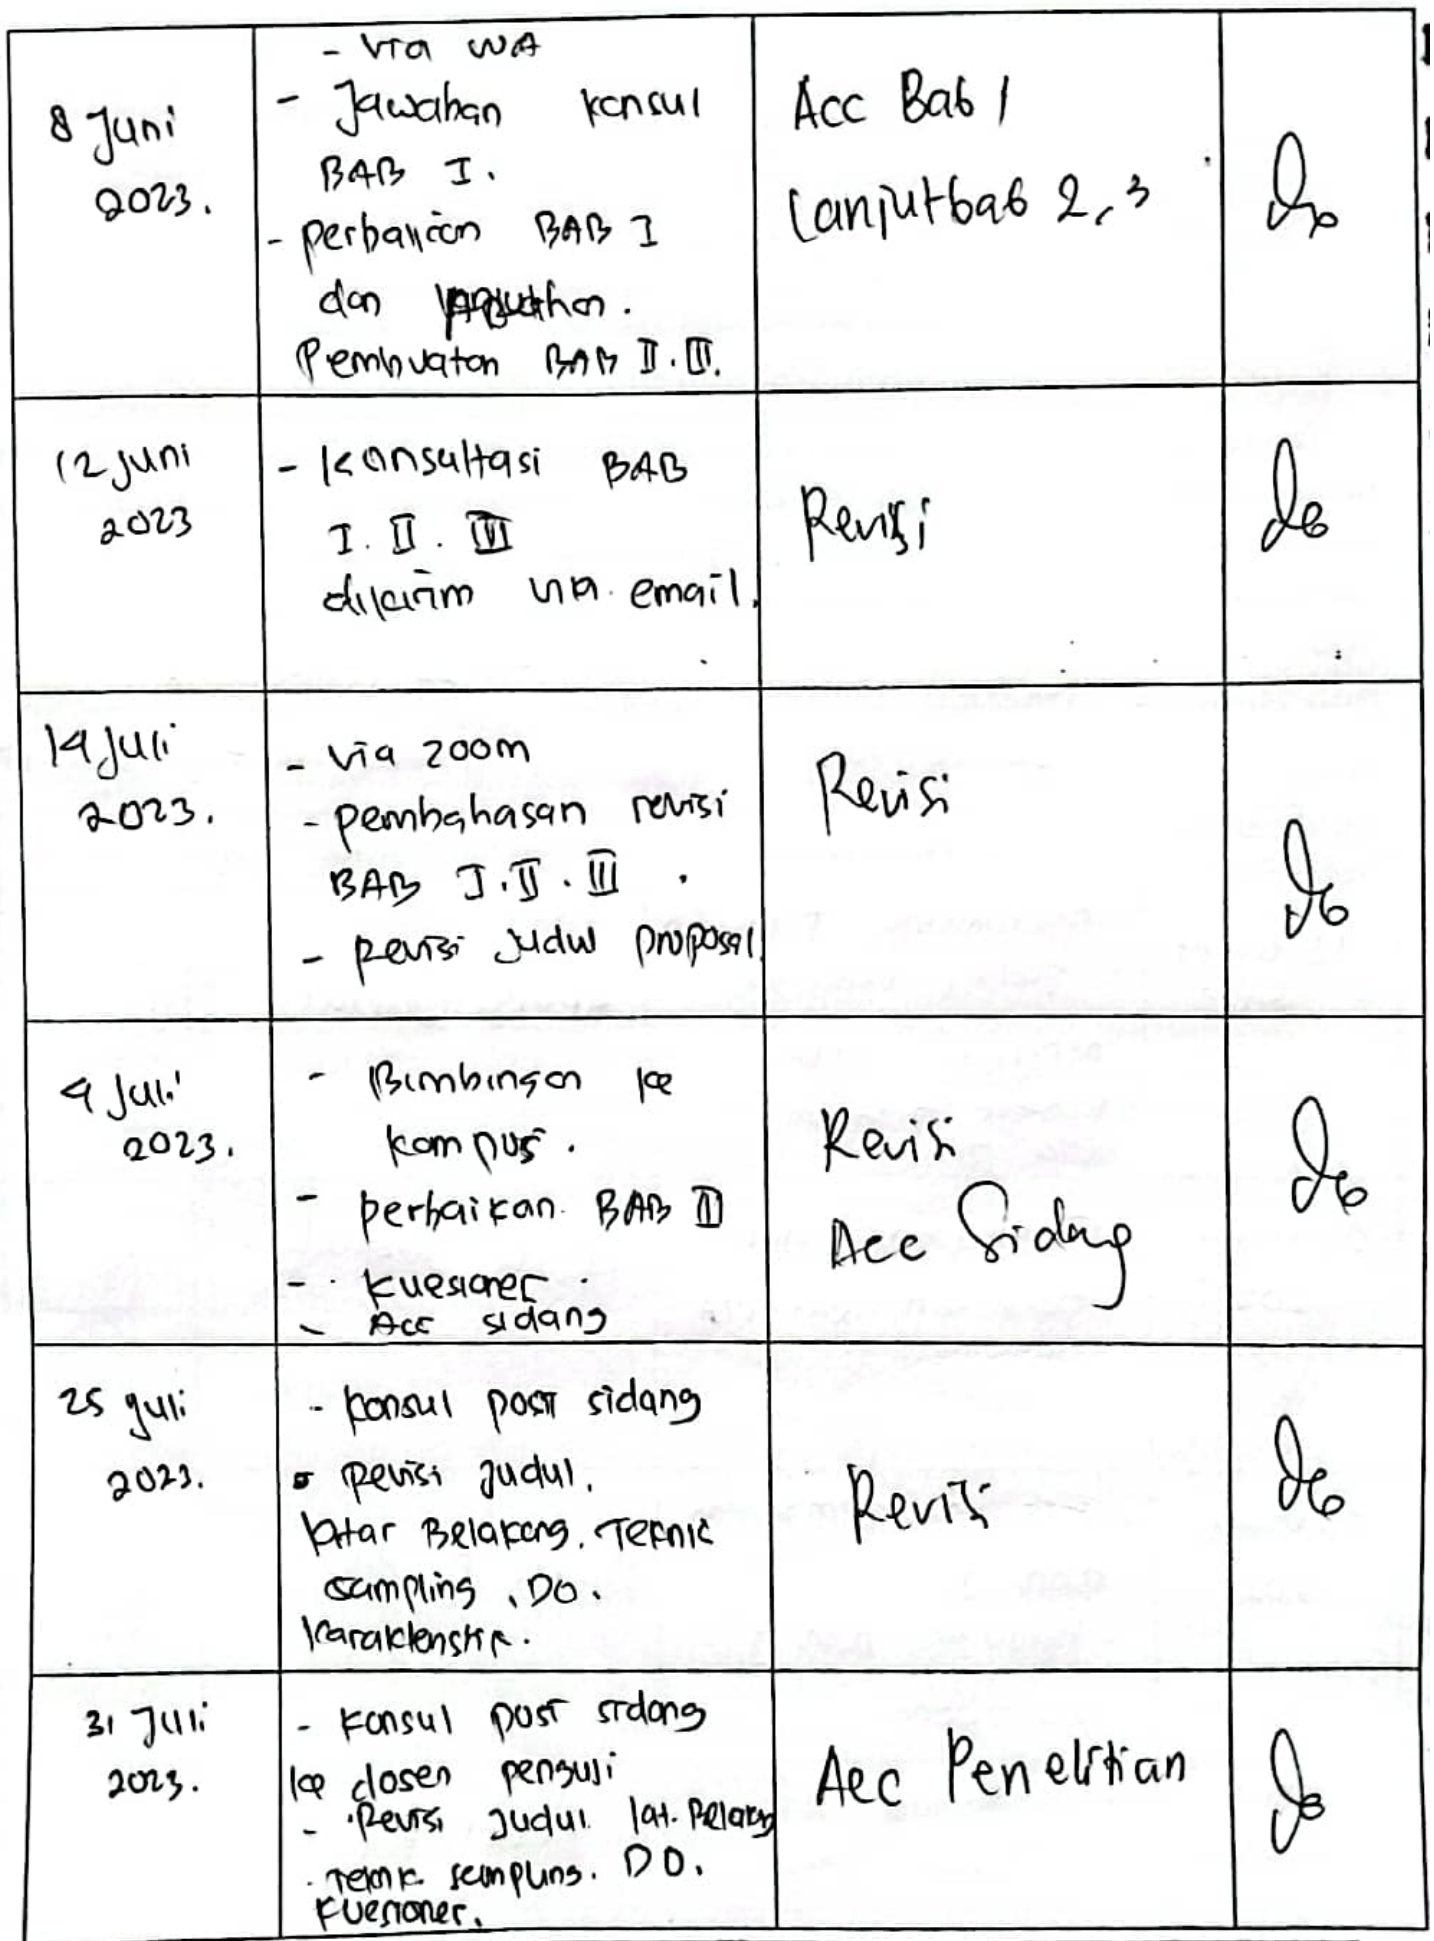 8 Juni
2023.
- via WA
- Jawaban konsul
BAB I.
- perbaikan BAB I
dan
Pembuatan BAB II. III.
Acc Bab 1
Lanjut bab 2, 3
12 Juni
2023
- Konsultasi BAB
I. II. III
dikirim via email.
Revisi
14 Juli
2023.
- via zoom
- pembahasan revisi
BAB I. II. III.
- revisi judul proposal
Revisi
4 Juli
2023.
- Bimbingan ke
kampus.
- perbaikan BAB II
- kuesioner
- Acc sidang
Revisi
Acc Sidang
25 Juli
2023.
- konsul post sidang
- Revisi Judul,
latar Belakang, Teknik
sampling, DO.
karakteristik.
Revisi
31 Juli
2023.
- konsul post sidang
ke dosen penguji
- Revisi Judul. lat. Belakang
- Teknik sampling. DO.
kuesioner.
Acc Penelitian